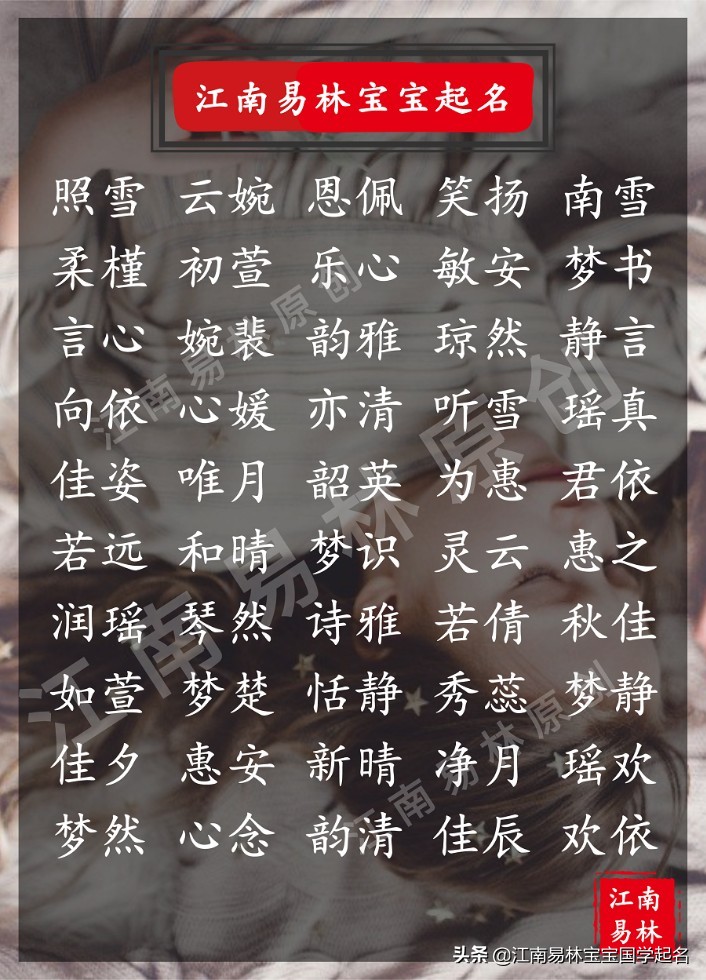 江南易林宝宝起名
照雪 云婉 恩佩 笑扬 南雪
柔槿 初萱 乐心 敏安 梦书
言心 婉裴 韵雅 琼然 静言
向依 心媛 亦清 听雪 瑶真
佳姿 唯月 韶英 为惠 君依
若远 和晴 梦识 灵云 惠之
润瑶 琴然 诗雅 若倩 秋佳
如萱 梦楚 恬静 秀蕊 梦静
佳夕 惠安 新晴 净月 瑶欢
梦然 心念 韵清 佳辰 欢依
江南易林原创
江南易林原创
江南易林原创
江南
易林
头条 @江南易林宝宝国学起名